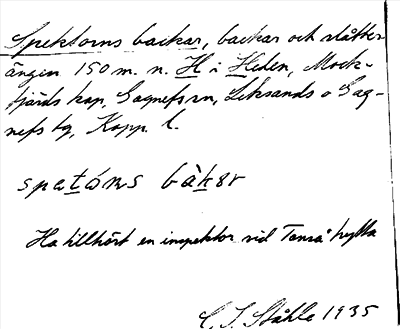 Spektorns backar, backar och slåtter-
ängen 150 m. n. H i Heden, Mock-
fjärds kap, Gagnefs sn, Leksands o Gag-
nefs tg, Kopp. l.
spetóns bàkər
Ha tillhört en inspektor vid Tanså hytta
C. I. Ståhle 1935